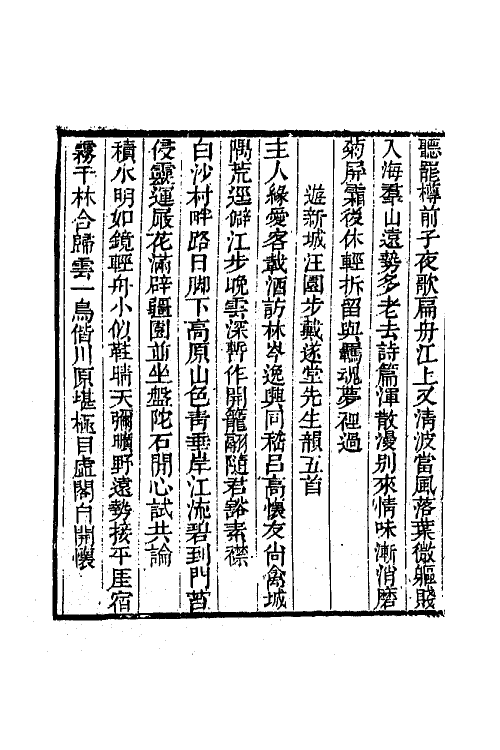 聽罷樽前子夜歌扁舟江上又清波當風落葉微軀賤
入海羣山遠勢多老去詩篇渾散漫別來情味漸消磨
菊屏霜後休輕拆留與羈魂夢裡過
遊新城汪園步戴遂堂先生韻五首
主人緣愛客載酒訪林岑逸興同嵇呂高懷友尚禽城
隅荒逕僻江步晚雲深暫作開籠翮隨君豁素襟
白沙村畔路日腳下高原山色青垂岸江流碧到門苔
侵靈運屐花滿辟疆園並坐盤陀石開心試共論
積水明如鏡輕舟小似鞋晴天彌曠野遠勢接平厓宿
霧千林合歸雲一鳥偕川原堪極目虛閣自開懷